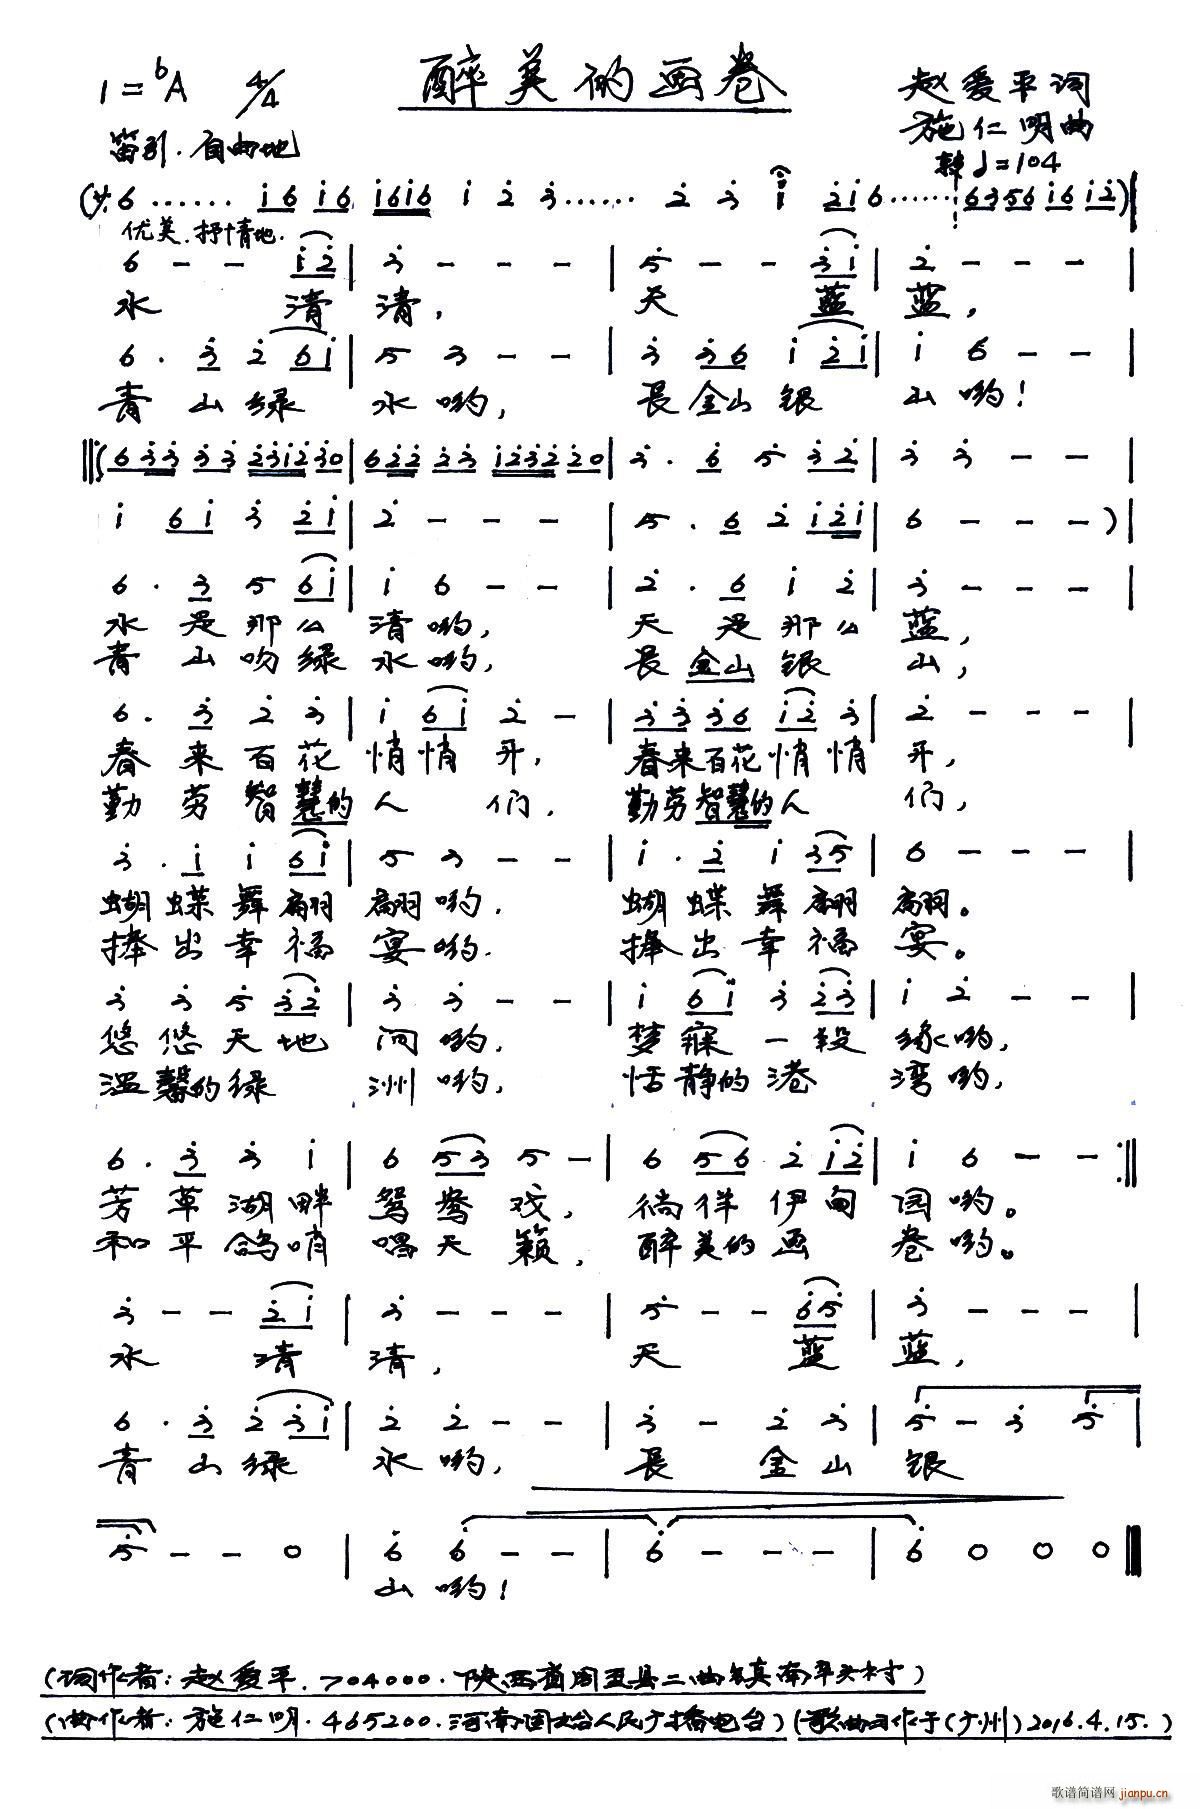 醉美的画卷
1=♭A 4/4
赵爱平词
施仁明曲
笛引.自由地
♩=104
(サ 6······ i̇6 i̇6 i̇6i̇6 i̇ 2̇ 3̇······ 2̇ 3̇ i̇ 2̇i̇ 6······ 6356 i̇6 i̇2̇)|
优美.抒情地.
6 - - i̇2̇ | 3̇ - - - | 5̇ - - 3̇i̇ | 2̇ - - - |
水 清 清, 天 蓝 蓝,
6. 3̇ 2̇ 6i̇ | 5 3 - - | 3̇ 3̇6 i̇ 2̇i̇ | i̇ 6 - - |
青山绿 水哟, 是金山银 山哟!
‖:(63̇3̇ 3̇3̇ 2̇3̇i̇2̇ 3̇0 | 62̇2̇ 2̇3̇ i̇2̇3̇2̇ 2̇0 | 3̇. 6 5 3̇2̇ | 3̇ 3̇ - - |
i̇ 6i̇ 3̇ 2̇i̇ | 2̇ - - - | 5. 6 2̇ i̇2̇i̇ | 6 - - - )|
6. 3̇ 5 6i̇ | i̇ 6 - - | 2̇. 6 i̇ 2̇ | 3̇ - - - |
水是那么 清哟, 天是那么 蓝,
青山吻绿 水哟, 是金山银 山,
6. 3̇ 2̇ 3̇ | i̇ 6i̇ 2̇ - | 3̇3̇ 3̇6 i̇2̇ 3̇ | 2̇ - - - |
春来百花 悄悄开, 春来百花悄悄 开,
勤劳智慧的 人们, 勤劳智慧的人 们,
3̇. i̇ i̇ 6i̇ | 5 3 - - | i̇. 2̇ i̇ 35 | 6 - - - |
蝴蝶舞翩 翩哟. 蝴蝶舞翩 翩。
捧出幸福 宴哟. 捧出幸福 宴。
3̇ 3̇ 5̇ 3̇2̇ | 3̇ 3̇ - - | i̇ 6i̇ 3̇ 2̇3̇ | i̇ 2̇ - - |
悠悠天地 间哟, 梦寐一段 缘哟,
温馨的绿 洲哟, 恬静的港 湾哟,
6. 3̇ 3̇ i̇ | 6 53 5 - | 6 56 2̇ i̇2̇ | i̇ 6 - - :‖
芳草湖畔 鸳鸯戏, 徜徉伊甸 园哟。
和平鸽哨 唱天籁, 醉美的画 卷哟。
3̇ - - 2̇i̇ | 3̇ - - - | 5̇ - - 6̇5̇ | 3̇ - - - |
水 清 清, 天 蓝 蓝,
6. 3̇ 2̇ 3̇i̇ | 2̇ 2̇ - - | 3̇ - 2̇ 3̇ | 5̇ - 3̇ 5̇ |
青山绿 水哟, 是 金山 银
5̇ - - 0 | 6̇ 6̇ - - | 6̇ - - - | 6̇ 0 0 0 ‖
山哟!
(词作者:赵爱平.704000.陕西省周至县二曲镇南平头村)
(曲作者:施仁明.465200.河南固始人民广播电台)(歌曲写作于(广州)2016.4.15.)
歌谱简谱网
jianpu.cn